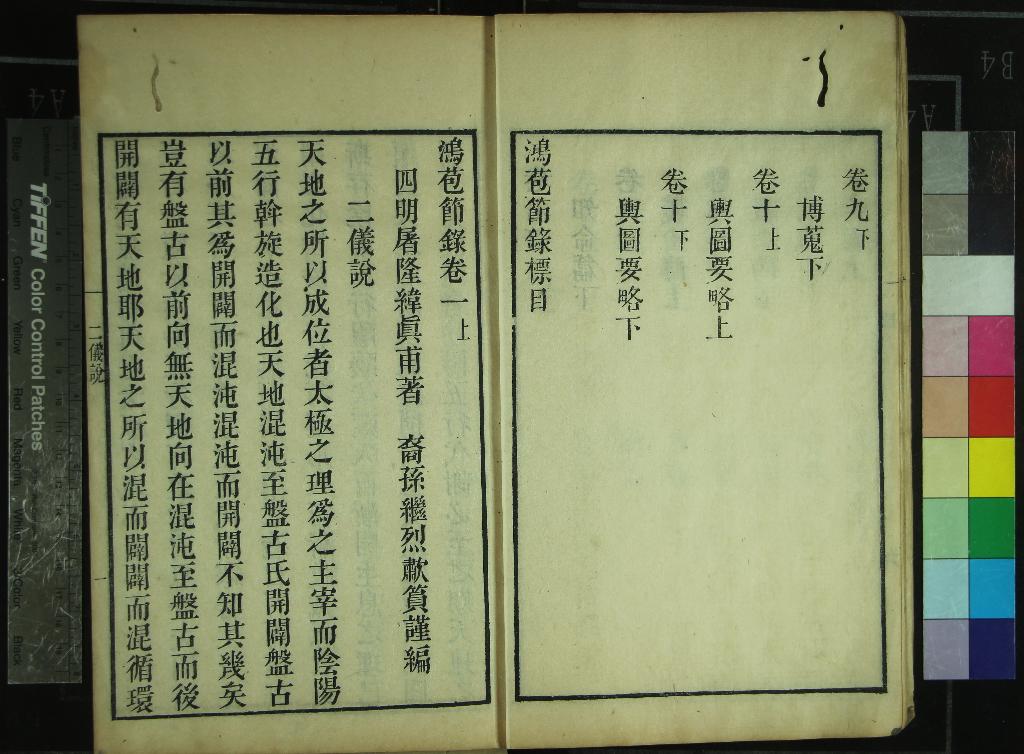 卷九下
博蒐下
卷十上
輿圖要略上
卷十下
輿圖要略下
鴻苞節錄標目
鴻苞節錄卷一上
四明屠隆緯眞甫著　裔孫繼烈歗篔謹編
二儀說
天地之所以成位者太極之理爲之主宰而陰陽
五行斡旋造化也天地混沌至盤古氏開闢盤古
以前其爲開闢而混沌混沌而開闢不知其幾矣
豈有盤古以前向無天地向在混沌至盤古而後
開闢有天地耶天地之所以混而闢闢而混循環
二儀說
一
TIFFEN Color Control Patches
Blue
Cyan
Green
Yellow
Red
Magenta
White
3/Color
Black
A4
A4
B4